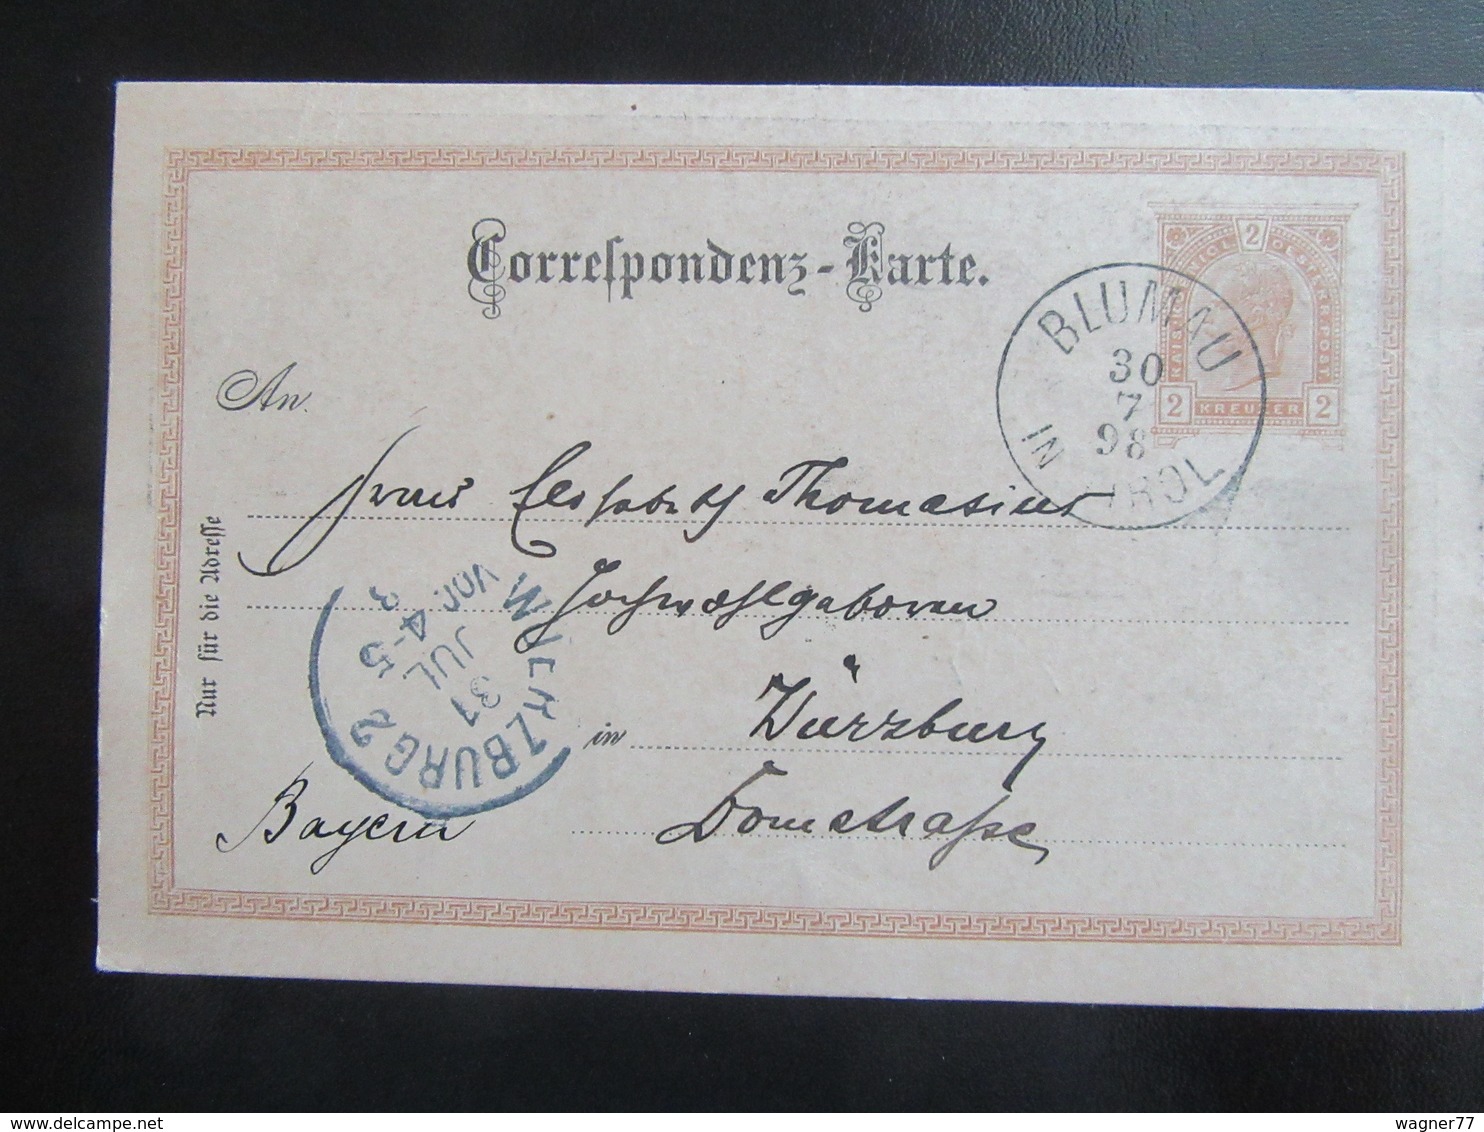 Correspondenz-Karte.
2
KAISERL. KÖNIGL. OESTERR. POST
2 KREUZER 2
BLUMAU
30
7
98
IN TIROL
An
Frau Elisabeth Thomasius
Hochwohlgeboren
in Würzburg
Bayern Domstraße
Nur für die Adresse
WÜRZBURG 2
31
JUL
Vor. 4-5
wagner77